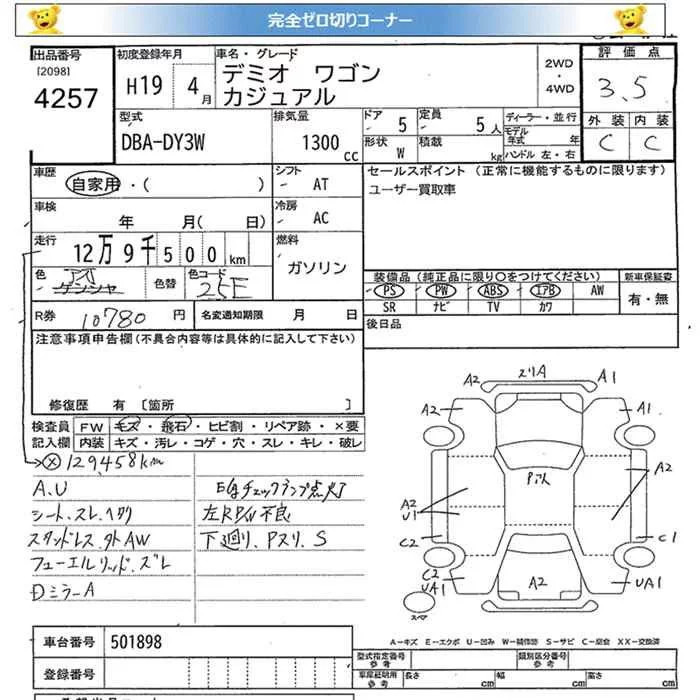 完全ゼロ切りコーナー
出品番号 初度登録年月 車名・グレード 評価点
[2098] H19 4月 デミオ ワゴン 2WD・4WD 3.5
4257 カジュアル
型式 排気量 ドア 定員 ディーラー・並行 外装 内装
DBA-DY3W 1300cc 5 5人 モデル年式 年 C C
形状 W 積載 kg ハンドル 左・右
車歴 シフト セールスポイント (正常に機能するものに限ります)
自家用・( ) AT ユーザー買取車
車検 冷房
年 月( 日) AC
走行 12万9千500km 燃料
ガソリン
装備品(純正品に限り○をつけてください) 新車保証書
色 ゲンシャ 色替 色コード 25E
PS PW ABS エアB AW 有・無
SR ナビ TV カワ
R券 10780円 名変通知期限 月 日 後日品
注意事項申告欄(不具合内容等は具体的に記入して下さい)
修復歴 有 [箇所 ]
検査員 FW キズ・飛石・ヒビ割・リペア跡・×要
記入欄 内装 キズ・汚レ・コゲ・穴・スレ・キレ・破レ
129458km
A.U
シート.スレ.ヘタリ 左RPW不良
スタッドレス.外AW 下廻り.Pスリ.S
フューエルリッド.ズレ
Dミラー A
A2 スリA A1
A2 A1
A2
A2
U1
C2 C1
C2 A2
UA1 UA1
スペア
A-キズ E-エクボ U-凹み W-補修跡 S-サビ C-腐食 XX-交換済
車台番号 501898
登録番号
型式指定番号 参考 類別区分番号 参考
車庫証明用 参考 長さ cm 幅 cm 高さ cm